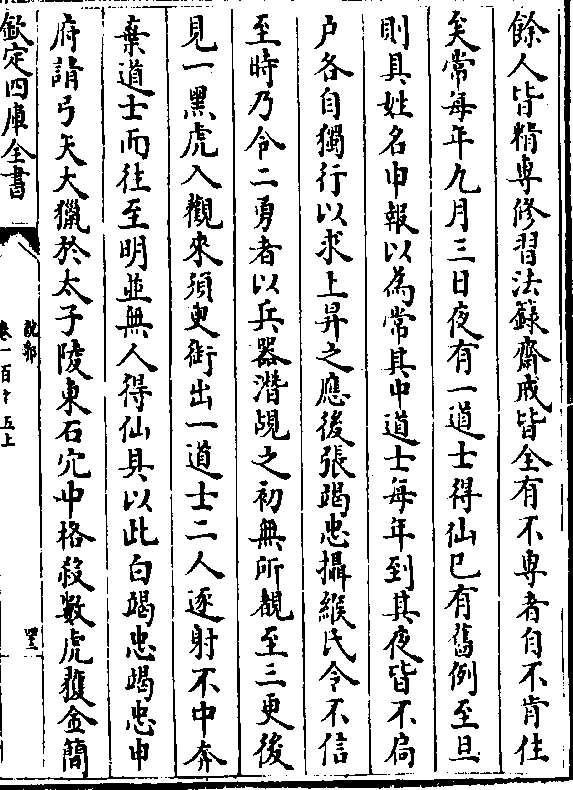 餘人皆精専修習法籙齋戒皆全有不専者自不肯住
矣常每年九月三日夜有一道士得仙已有舊例至旦
則具姓名申報以為常其中道士每年到其夜皆不扄
户各自獨行以求上昇之應後張竭忠攝緱氏令不信
至時乃令二勇者以兵器潛覘之初無所覩至三更後
見一黒虎入觀來須臾銜出一道士二人逐射不中奔
棄道士而往至明並無人得仙具以此白竭忠竭忠申
府請弓矢大獵於太子陵東石穴中格殺數虎獲金簡
欽定四庫全書
說郛
卷一百十五上